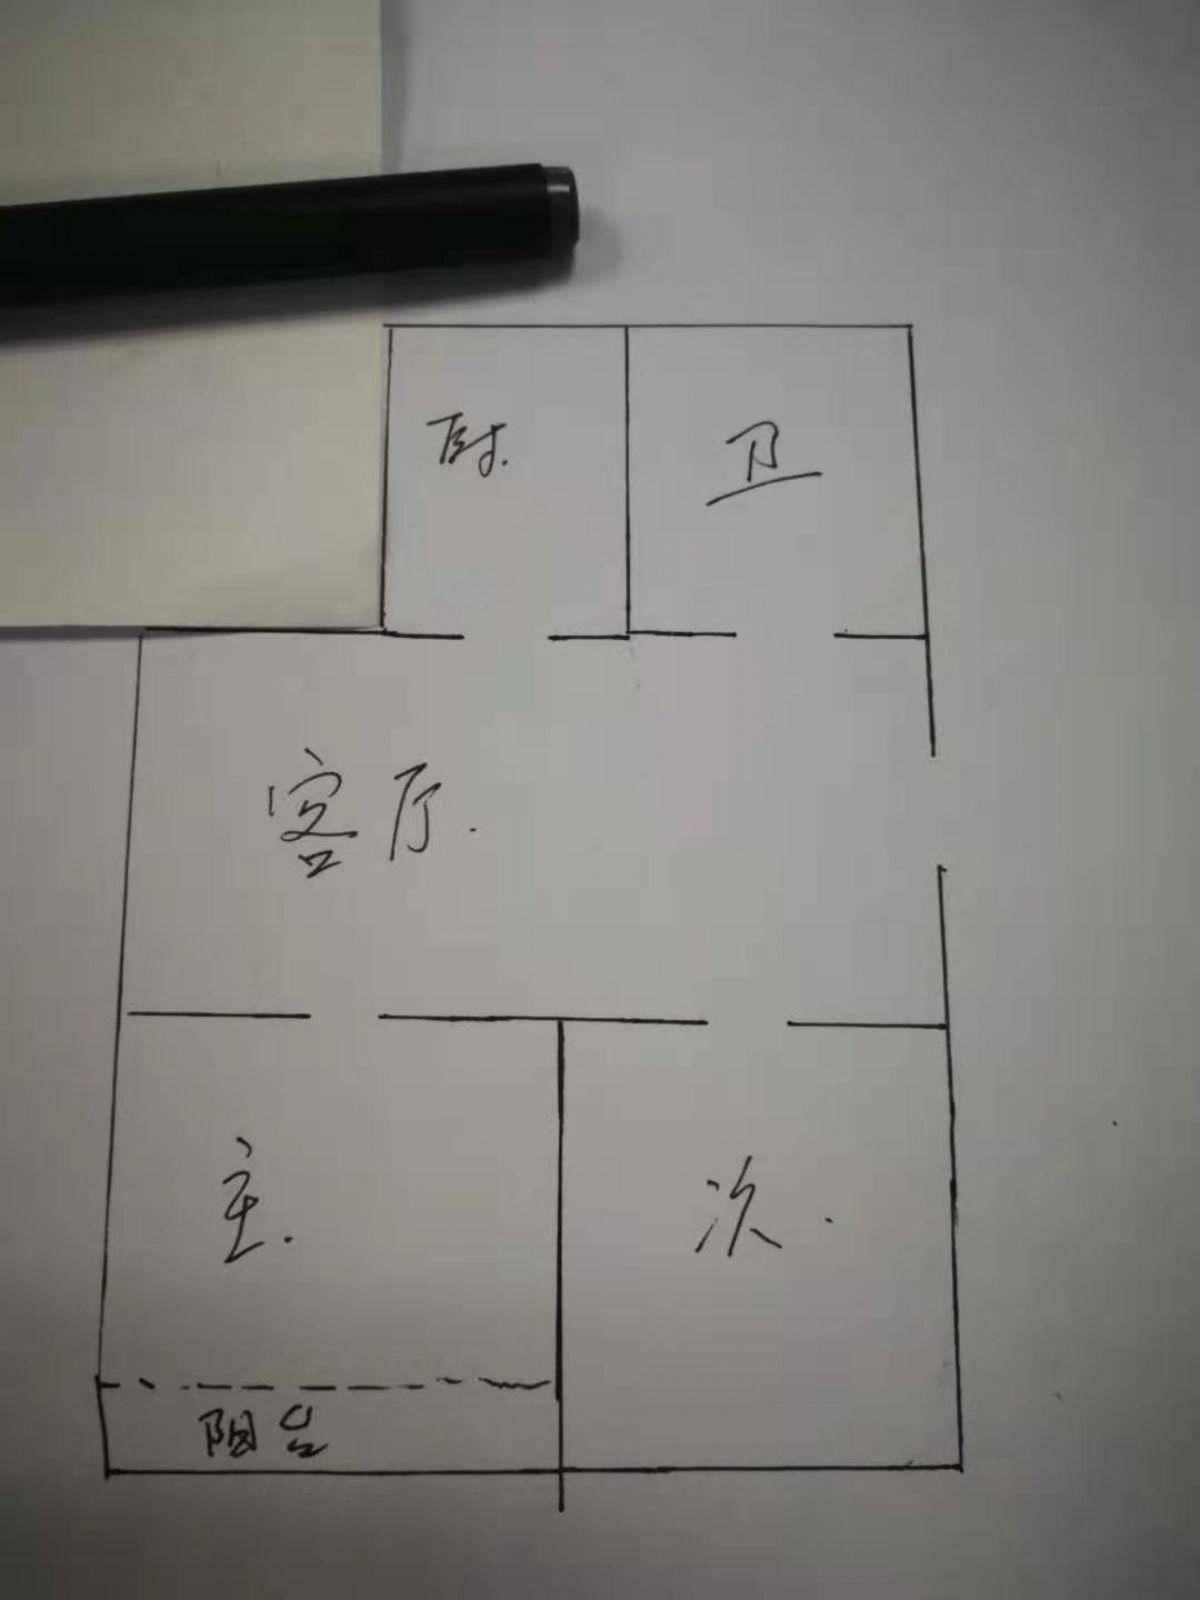 厨.
卫
客厅.
主.
次.
阳台